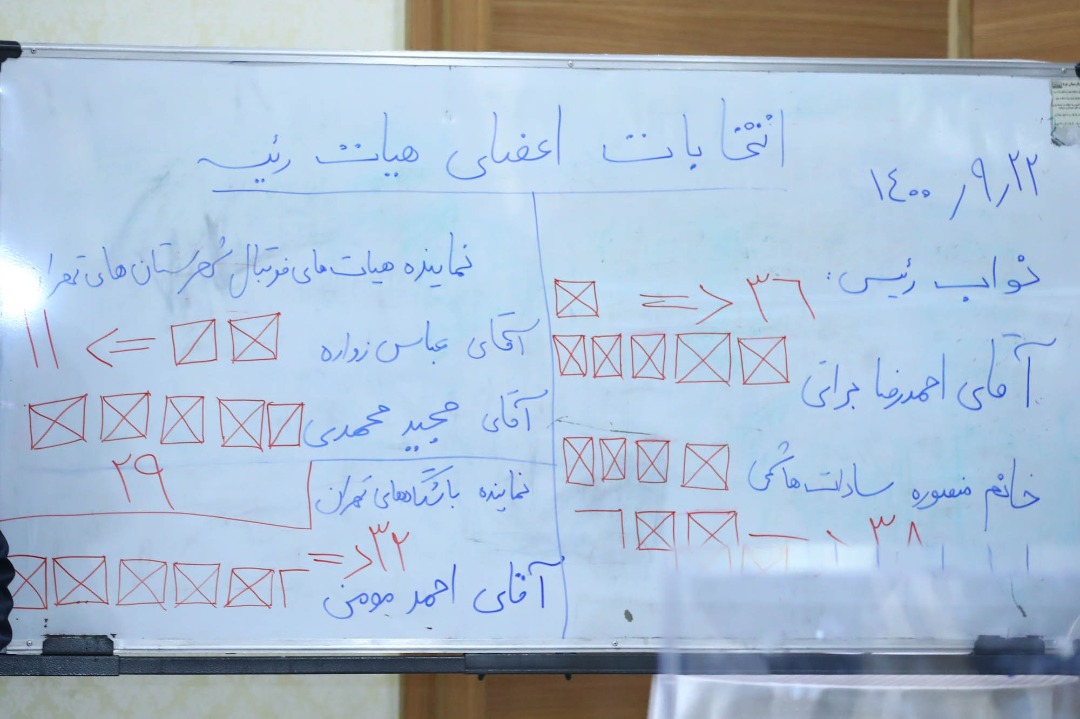 انتخابات اعضای هیات رئیسه
۱۴۰۰٫۹٫۲۲
نواب رئیس:
۳۶
آقای احمدرضا براتی
خانم منصوره سادات هاشمی
۳۸
نماینده هیات های فوتبال شهرستان های تهرا
آقای عباس زواره
۱۱
آقای مجید محمدی
۲۹
نماینده باشگاههای تهران
۳۲
آقای احمد مومنی